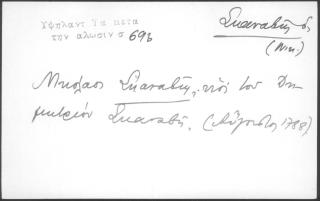 Υψηλαντ Τα μετα
την αλωσιν σ 693
Σκαναβῆς
(Νικ.)
Νικόλαος Σκαναβῆς, υἱὸς τοῦ Δη-
μητρίου Σκαναβῆ. (Αὔγουστος 1788)